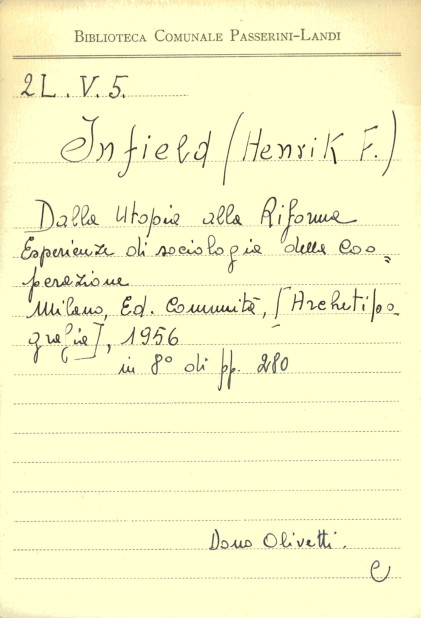 BIBLIOTECA COMUNALE PASSERINI-LANDI
2L. V. 5.
Infield (Henrik F.)
Dalla Utopia alla Riforma
Esperienze di sociologia della Coo=
perazione
Milano, Ed. Comunità, [Archetipo-
grafia], 1956
in 8° di pp. 280
Dono Olivetti.
C